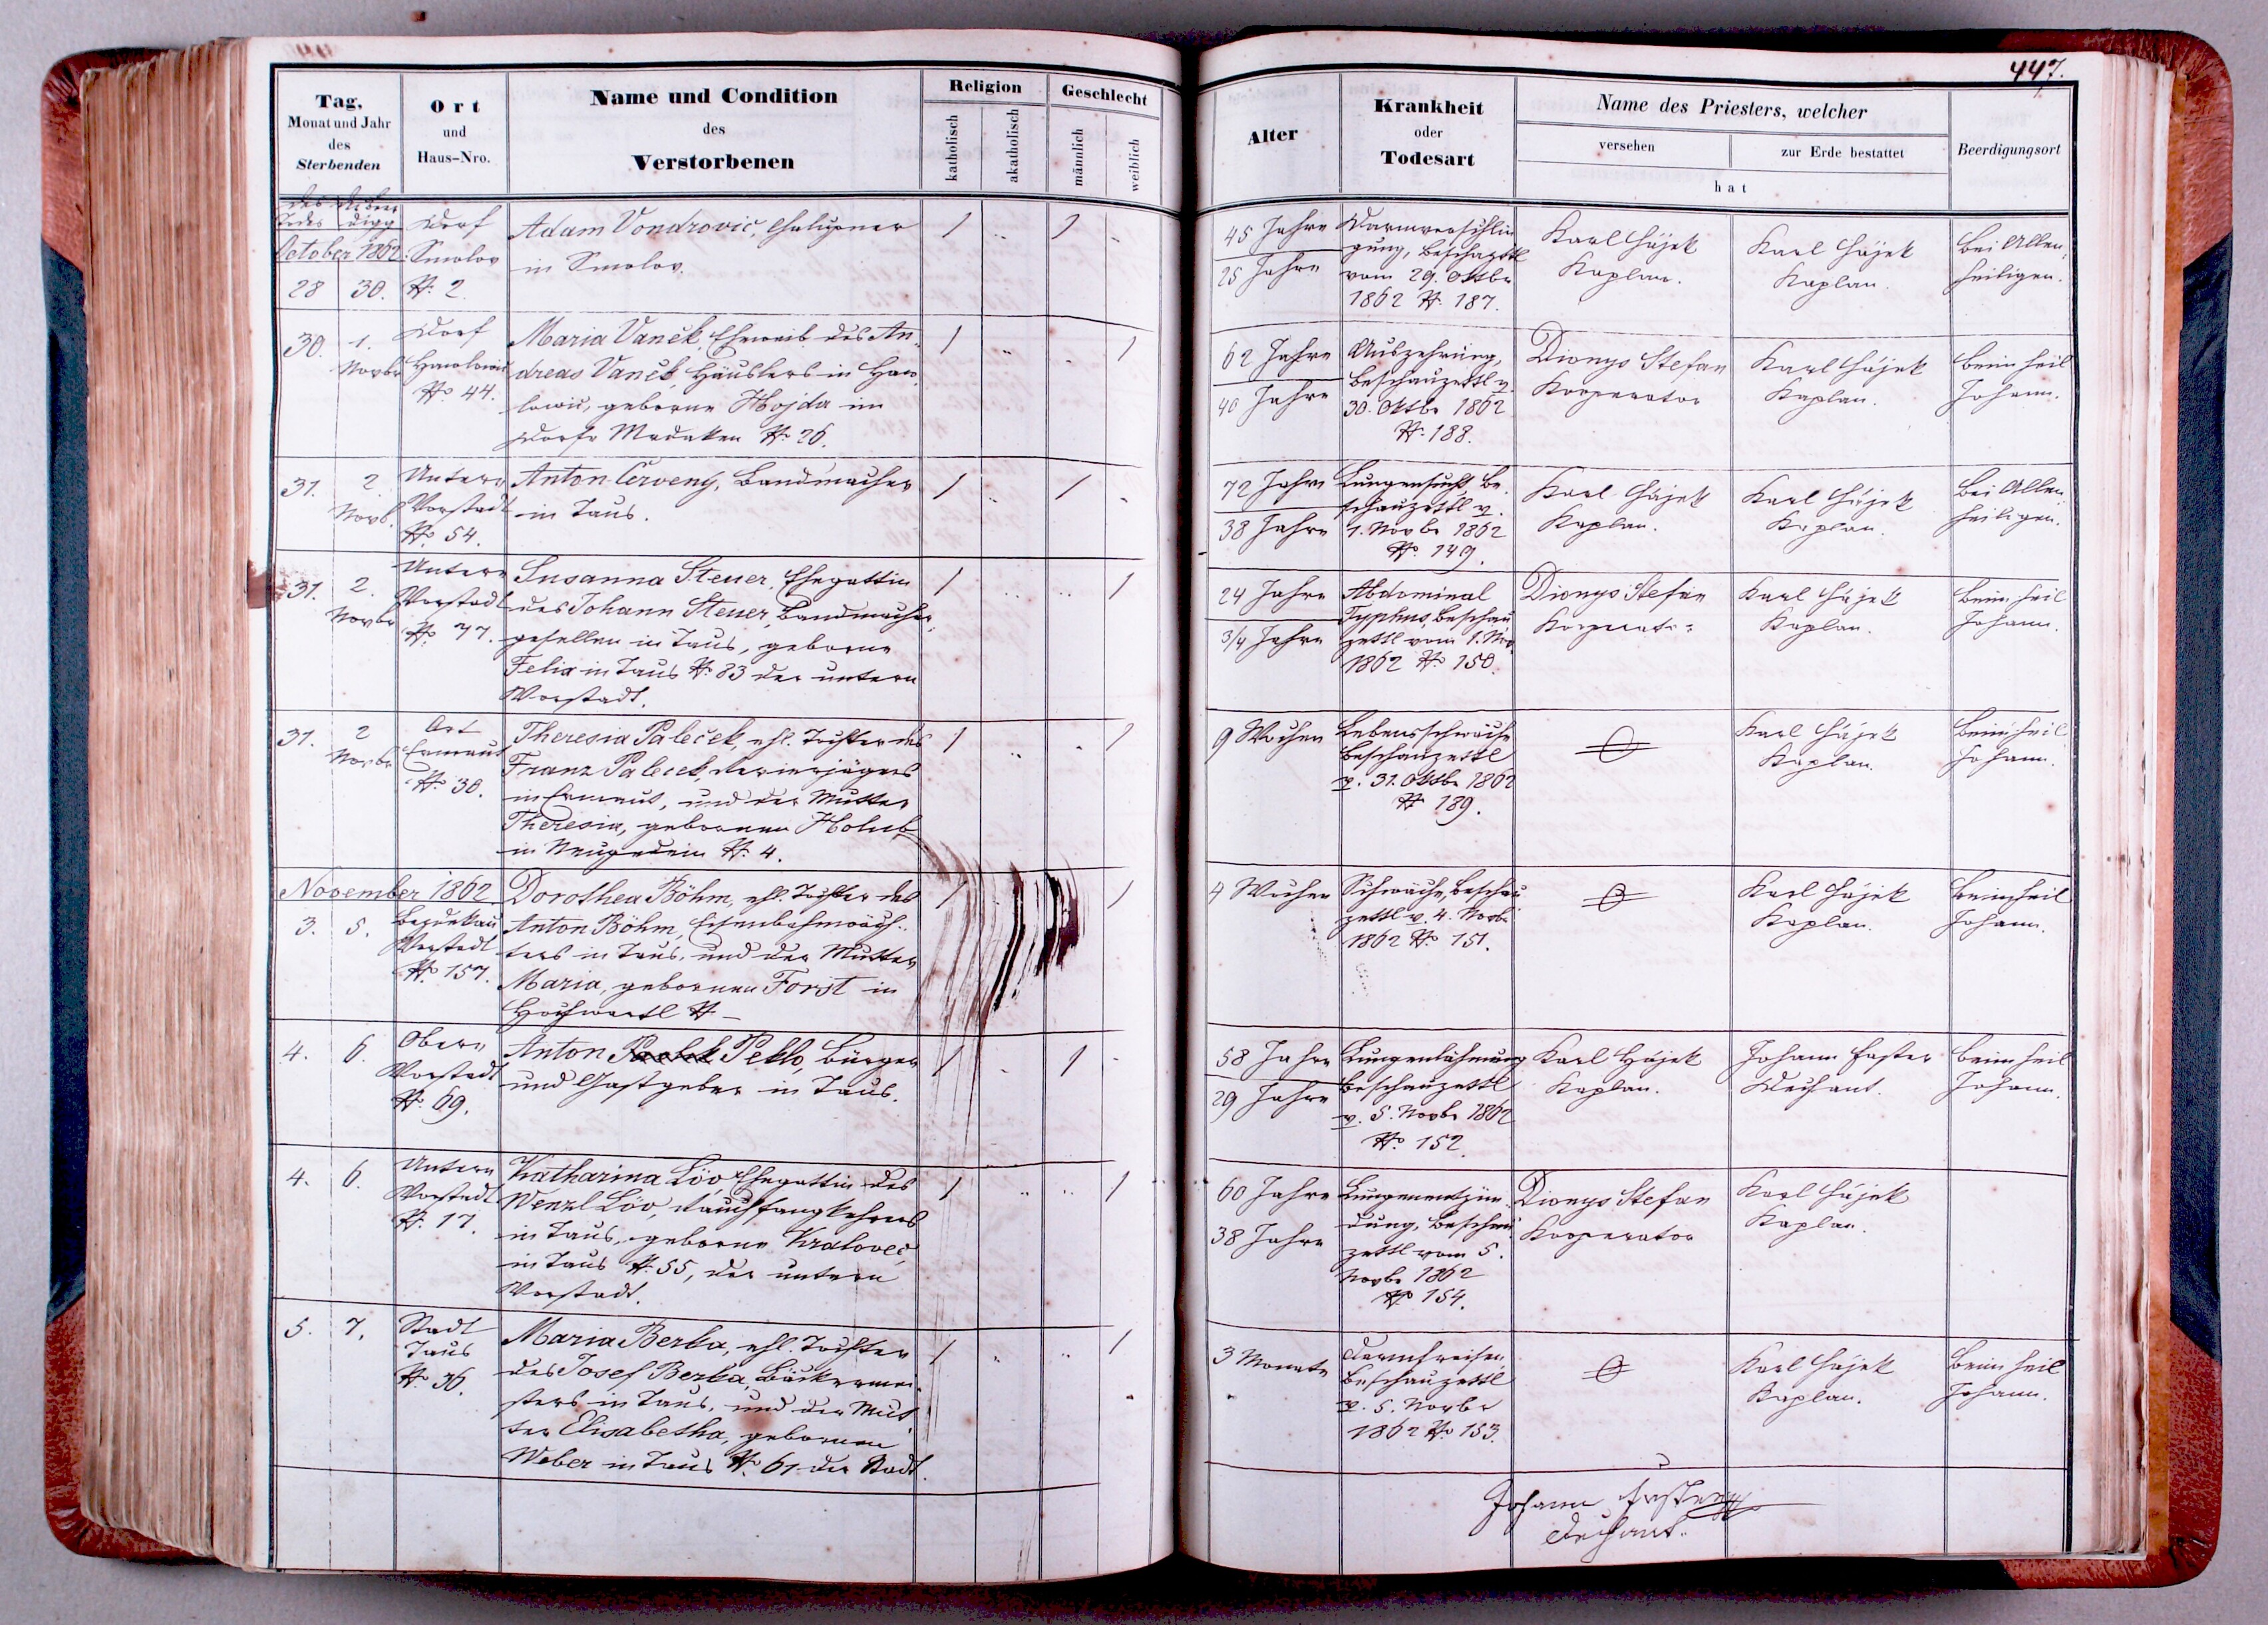 447.
Tag,
Monat und Jahr
des
Sterbenden
Ort
und
Haus-Nro.
Name und Condition
des
Verstorbenen
Religion
katholisch
akatholisch
Geschlecht
männlich
weiblich
Alter
Krankheit
oder
Todesart
Name des Priesters, welcher
versehen
zur Erde bestattet
hat
Beerdigungsort
des
Todes
October 1862
28 30.
Dorf
Smolov
N. 2.
Adam Vondrovic, Chalupner
in Smolov.
1 .. 1 ..
45 Jahre
25 Jahre
Darmverschlin
gung, Beschauzettl
vom 29. Oktbr
1862 N. 187.
Karl Hájek
Kaplan.
Karl Hájek
Kaplan.
bei Allen
heiligen.
30. 1.
Novbr
Dorf
Hawlowic
No. 44.
Maria Vaněk, Eheweib des An
dreas Vaněk, Häuslers in Haw
lowic, geborne Hojda im
Dorfe Madaken N. 26.
1 .. .. 1
62 Jahre
40 Jahre
Auszehrung,
Beschauzettl v.
30. Oktbr 1862
N. 188.
Dionys Stefan
Kooperator
Karl Hájek
Kaplan.
beim heil
Johann.
31. 2.
Novb.
Untere
Vorstadt
No. 54.
Anton Červeny, Bandmacher
in Taus.
1 .. 1 ..
72 Jahre
38 Jahre
Lungensucht, Be
schauzettl v.
1. Novbr 1862
No. 149.
Karl Hájek
Kaplan.
Karl Hájek
Kaplan.
bei Allen
heiligen.
31. 2.
Novbr
Untere
Vorstadt
No. 77.
Susanna Steuer, Ehegattin
des Johann Steuer, Bandmacher
gesellen in Taus, geborne
Felix in Taus N. 83 der untern
Vorstadt.
1 .. .. 1
24 Jahre
3/4 Jahre
Abdominal
Typhus, Beschau
zettl vom 1. Nov
1862 No. 150.
Dionys Stefan
Kooperator
Karl Hájek
Kaplan.
beim heil
Johann.
31. 2
Novbr
Ort
No. 30.
Theresia Paleček, ehl. Tochter des
Franz Paleček, Revierjägers
in, und der Mutter
Theresia, gebornen Holub
in Neugedein N. 4.
1 .. .. 1
9 Wochen
Lebensschwäche
Beschauzettl
v. 31. Oktbr 1862
N. 189.
Karl Hájek
Kaplan.
beim heil.
Johann.
November 1862
3. 5.
Bezdekau
Vorstadt
No. 157.
Dorothea Böhm, ehl. Tochter des
Anton Böhm, Eisenbahnwäch
ters in Taus, und der Mutter
Maria, gebornen Forst in
Hochwartl N –
1 1
4 Wochen
Schwäche, Beschau
zettl v. 4. Novbr
1862 N. 151.
Karl Hájek
Kaplan.
beim heil
Johann.
4. 6.
Obere
Vorstadt
N. 69.
Anton Pelb, Bürger
und Gastgeber in Taus.
1 .. 1
58 Jahre
29 Jahre
Lungenlähmung
Beschauzettl
v. 5. Novbr 1862
No. 152.
Karl Hájek
Kaplan.
Johann Faster
Dechant.
beim heil
Johann.
4. 6.
Untere
Vorstadt
N. 17.
Katharina Löv, Ehegattin des
Wenzl Löv, Rauchfangkehrers
in Taus, geborne Kralovec,
in Taus N. 55, der untern
Vorstadt.
1 .. .. 1
60 Jahre
38 Jahre
Lungenentzün
dung, Beschau
zettl vom 5.
Novbr 1862
No. 154.
Dionys Stefan
Kooperator
Karl Hájek
Kaplan.
5. 7.
Stadt
Taus
N. 36.
Maria Berka, ehl. Tochter
des Josef Berka, Bäckermei
sters in Taus, und der Mut
ter Elisabetha, gebornen
Weber in Taus N. 61 der Stadt.
1 .. .. 1
3 Monate
Darmfraisen,
Beschauzettl
v. 5. Novbr
1862 No. 153.
Karl Hájek
Kaplan.
beim heil
Johann.
Johann Faster
Dechant.